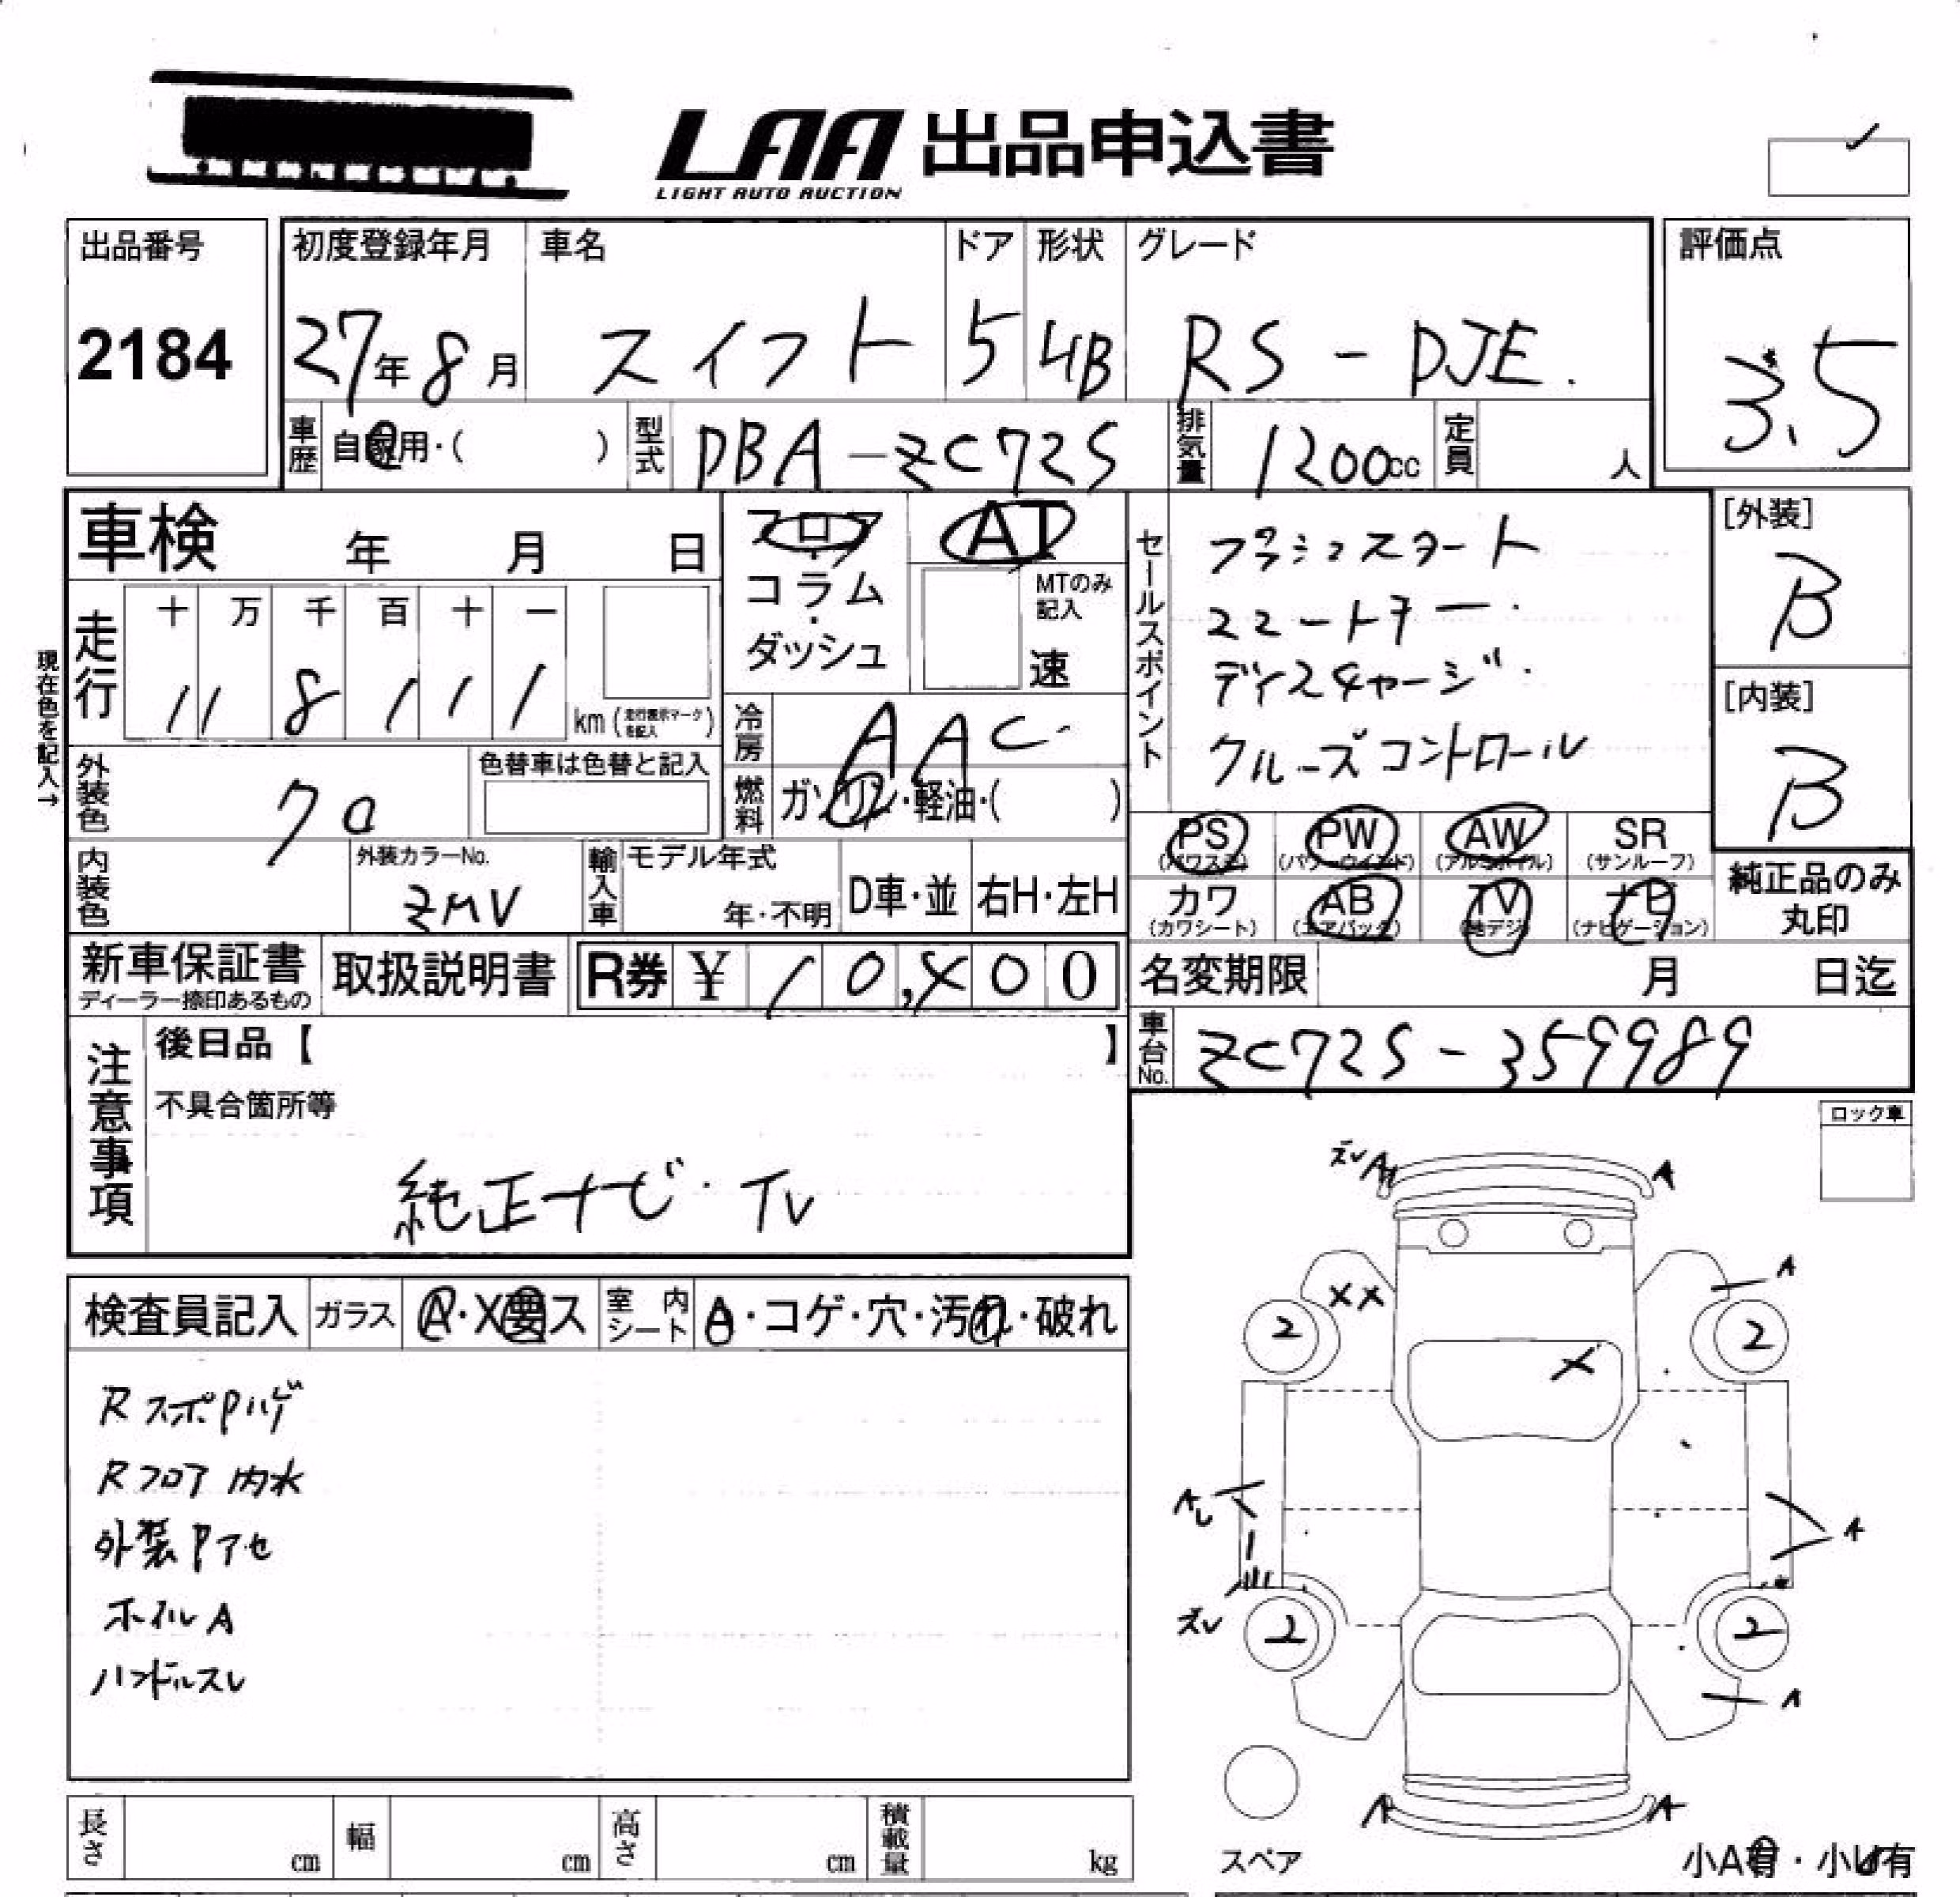 LAA 出品申込書
LIGHT AUTO AUCTION
出品番号
2184
初度登録年月
27年8月
車名
スイフト
ドア
5
形状
HB
グレード
RS-DJE.
評価点
3.5
車歴
自家用・( )
型式
DBA-ZC72S
排気量
1200cc
定員
人
車検 年 月 日
フロア
・
コラム
・
ダッシュ
AT
MTのみ
記入
速
セールスポイント
プッシュスタート
スマートキー.
ディスチャージ.
クルーズコントロール
[外装]
B
[内装]
B
現在色を記入→
走行
十 万 千 百 十 一
118111
km(走行表示マークを記入)
冷房
AAC
燃料
ガソリン・軽油・( )
外装色
クロ
色替車は色替と記入
内装色
外装カラーNo.
ZMV
輸入車
モデル年式
年・不明
D車・並
右H・左H
PS
(パワステ)
PW
(パワーウインド)
AW
(アルミホイル)
SR
(サンルーフ)
カワ
(カワシート)
AB
(エアバッグ)
TV
(地デジ)
ナビ
(ナビゲーション)
純正品のみ
丸印
新車保証書
ディーラー捺印あるもの
取扱説明書
R券 ¥
名変期限 月 日迄
車台No.
ZC72S-359989
注意事項
後日品【 】
不具合箇所等
純正ナビ・TV
ロック車
検査員記入
ガラス
A・X要ス
室内シート
A・コゲ・穴・汚れ・破れ
RスポPハゲ
Rフロア内水
外装Pアセ
ホイルA
ハンドルスレ
ズレ A
A
A
XX
2
2
X
A
A
ズレ
2
2
A
A
A
スペア
小A有・小U有
長さ cm
幅 cm
高さ cm
積載量 kg